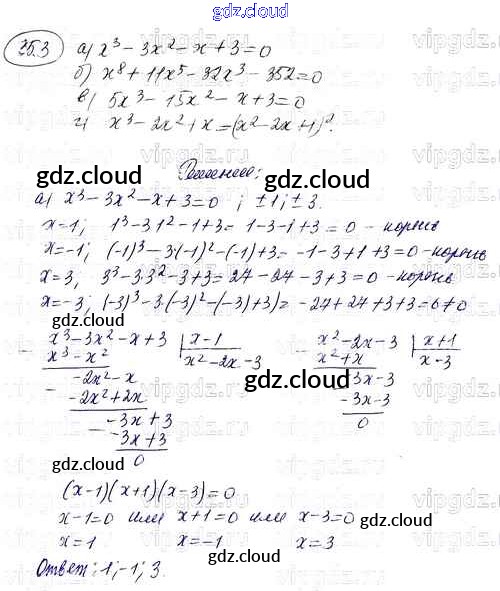 gdz.cloud
25.3 а) x³ - 3x² - x + 3 = 0
б) x⁸ + 11x⁵ - 32x³ - 352 = 0
в) 5x³ - 15x² - x + 3 = 0
г) x³ - 2x² + x = (x² - 2x + 1)².
Решение:
gdz.cloud
gdz.cloud
а) x³ - 3x² - x + 3 = 0 ; ±1; ±3.
x=1; 1³ - 3·1² - 1 + 3 = 1 - 3 - 1 + 3 = 0 - корень
x=-1; (-1)³ - 3·(-1)² - (-1) + 3 = -1 - 3 + 1 + 3 = 0 - корень
x=3; 3³ - 3·3² - 3 + 3 = 27 - 27 - 3 + 3 = 0 - корень
x=-3; (-3)³ - 3·(-3)² - (-3) + 3) = -27 + 27 + 3 + 3 = 6 ≠ 0
x³ - 3x² - x + 3 | x - 1
x³ - x² x² - 2x - 3
-2x² - x
-2x² + 2x
-3x + 3
-3x + 3
0
x² - 2x - 3 | x + 1
x² + x x - 3
-3x - 3
-3x - 3
0
gdz.cloud
gdz.cloud
gdz.cloud
(x-1)(x+1)(x-3) = 0
x-1=0 или x+1=0 или x-3=0
x=1 x=-1 x=3
Ответ: 1; -1; 3.
gdz.cloud
gdz.cloud
gdz.cloud